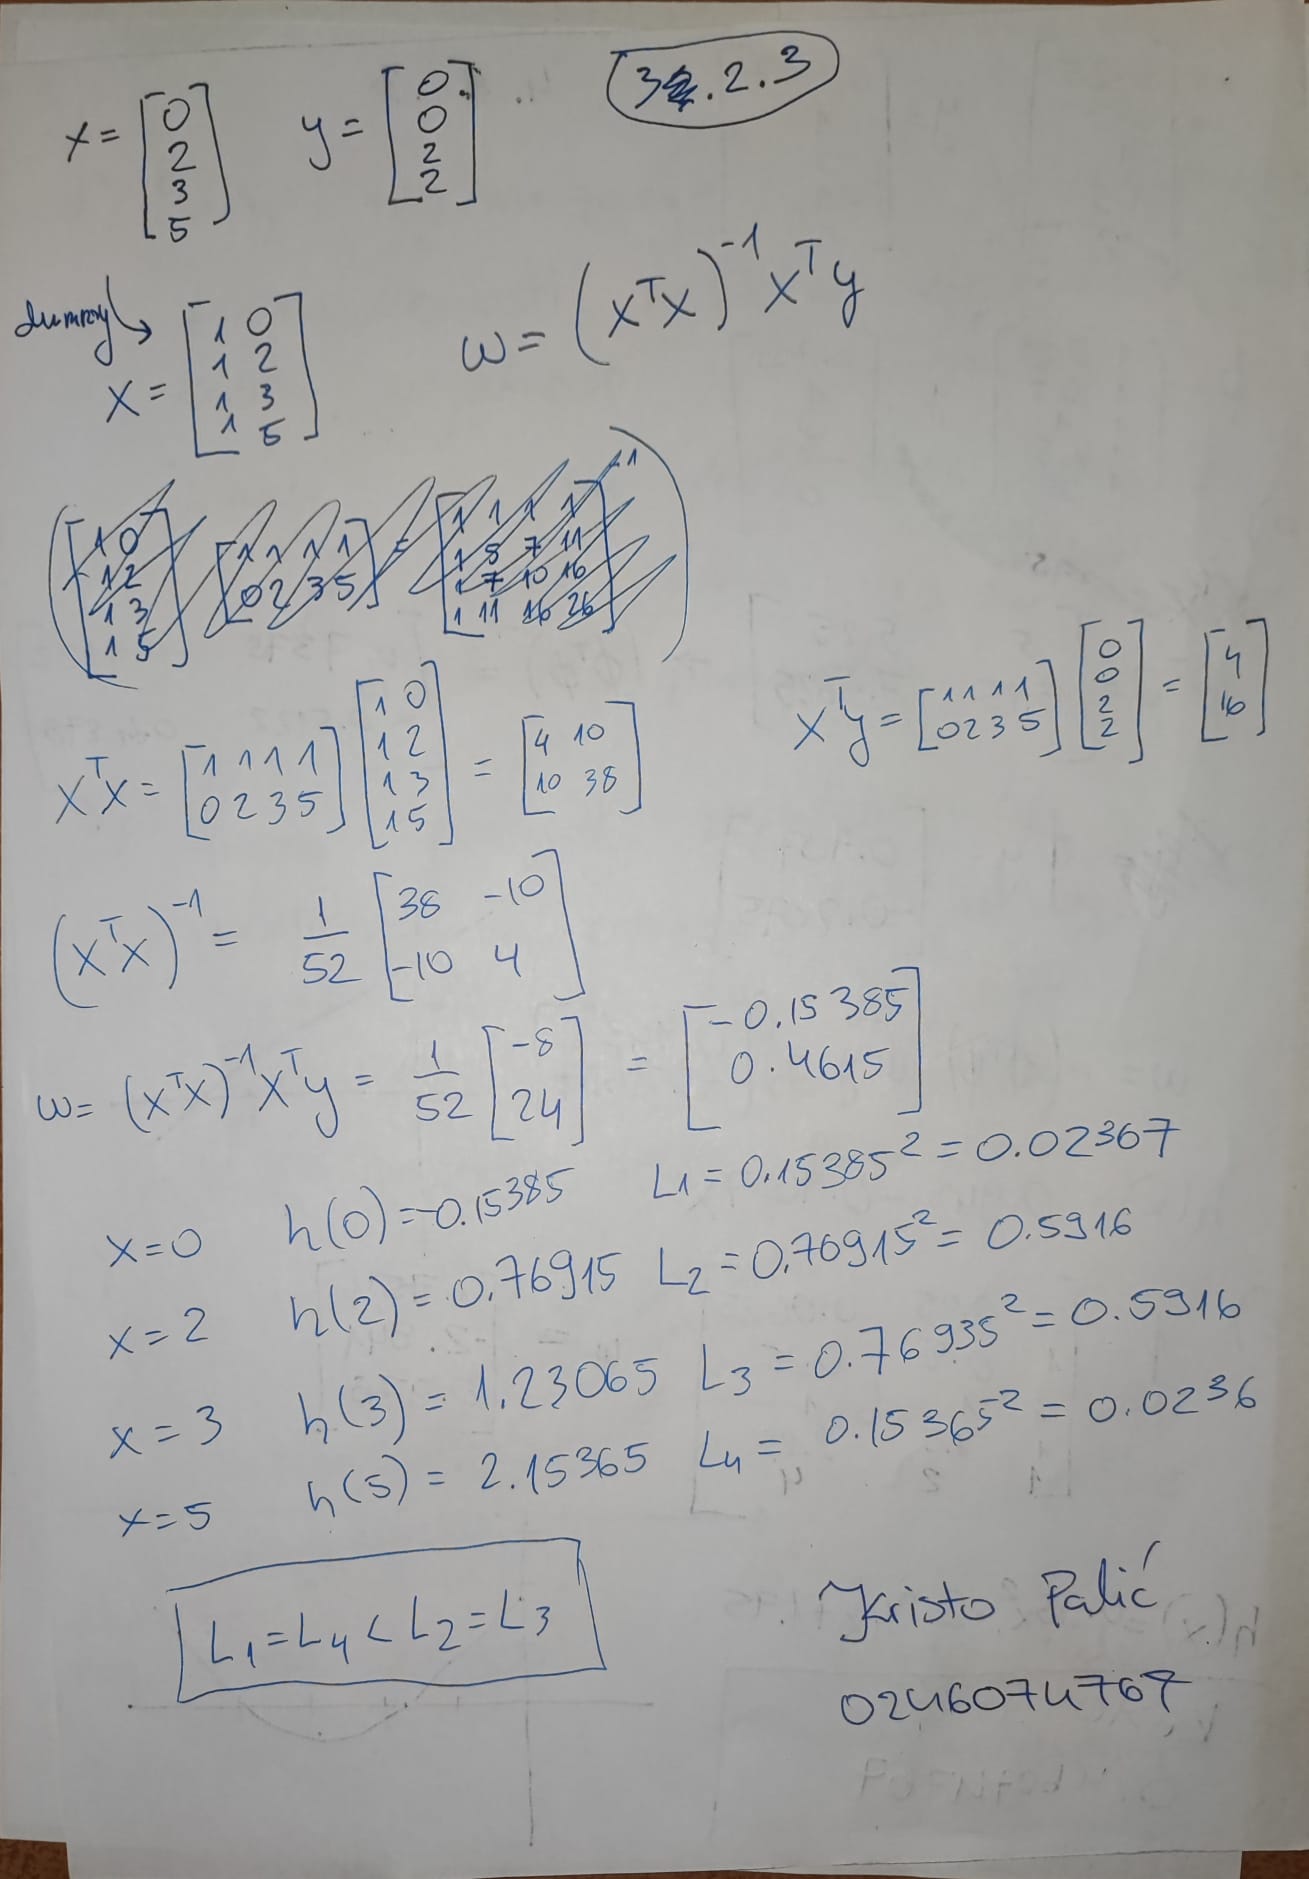 3.2.3
x = [0 2 3 5] y = [0 0 2 2]
dummy
X = [1 0 1 2 1 3 1 5] w = (XᵀX)⁻¹Xᵀy
([1 0 1 2 1 3 1 5] [1 1 1 1 0 2 3 5] = [1 1 1 1 1 5 7 11 1 7 10 16 1 11 16 26])⁻¹
XᵀX = [1 1 1 1 0 2 3 5] [1 0 1 2 1 3 1 5] = [4 10 10 38]
Xᵀy = [1 1 1 1 0 2 3 5] [0 0 2 2] = [4 16]
(XᵀX)⁻¹ = 1/52 [38 -10 -10 4]
w = (XᵀX)⁻¹Xᵀy = 1/52 [-8 24] = [-0.15385 0.4615]
x=0 h(0)=-0.15385 L₁=0.15385²=0.02367
x=2 h(2)=0.76915 L₂=0.76915²=0.5916
x=3 h(3)=1.23065 L₃=0.76935²=0.5916
x=5 h(5)=2.15365 L₄=0.15365²=0.0236
L₁=L₄<L₂=L₃
Kristo Palić
0246074767